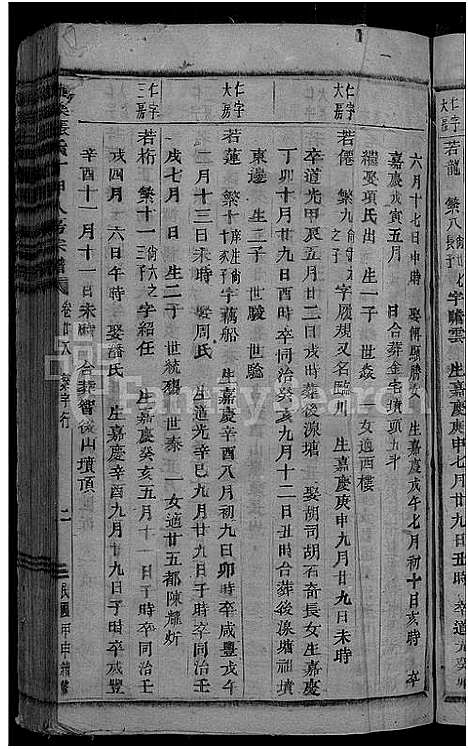 仁字大房 若龍 繁八 長子 字騰雲 生嘉慶庚申七月廿九日 卒道光
六月十七日申時 娶傅頤勝女 生嘉慶戊午七月初十日亥時 卒
嘉慶戊寅五月 日合葬金宅墳頭五斗
繼娶項氏出 生一子 世焱 女適西樓
仁字大房 若僊 繁九 之子 字履規又名臨川 生嘉慶庚申九月廿九日未時
卒道光甲辰五月廿三日戌時葬後源塘 娶胡司胡石奇長女生嘉慶
丁卯十月廿九日酉時卒同治癸亥九月十二日丑時合葬後源塘祖墳
東邊 生二子 世駿 世騐
仁字大房 若蓮 繁十 字藕船 生嘉慶辛酉八月初九日卯時卒咸豐戊午
二月十三日未時 娶周氏 生道光辛巳九月廿九日子時卒同治壬
戌七月 日 生二子 世統 世泰 一女適廿五都陳耀炘
仁字三房 若桁 繁十一 尙六之子 字紹任 生嘉慶癸亥五月十一日子時卒同治壬
戌四月 六日午時 娶潘氏 生嘉慶辛酉九月廿九日子時卒咸豐
辛酉十一月十一日未時 合葬智後山墳頂
宗譜 卷廿八 繁字行 二 民國甲申
FamilySearch